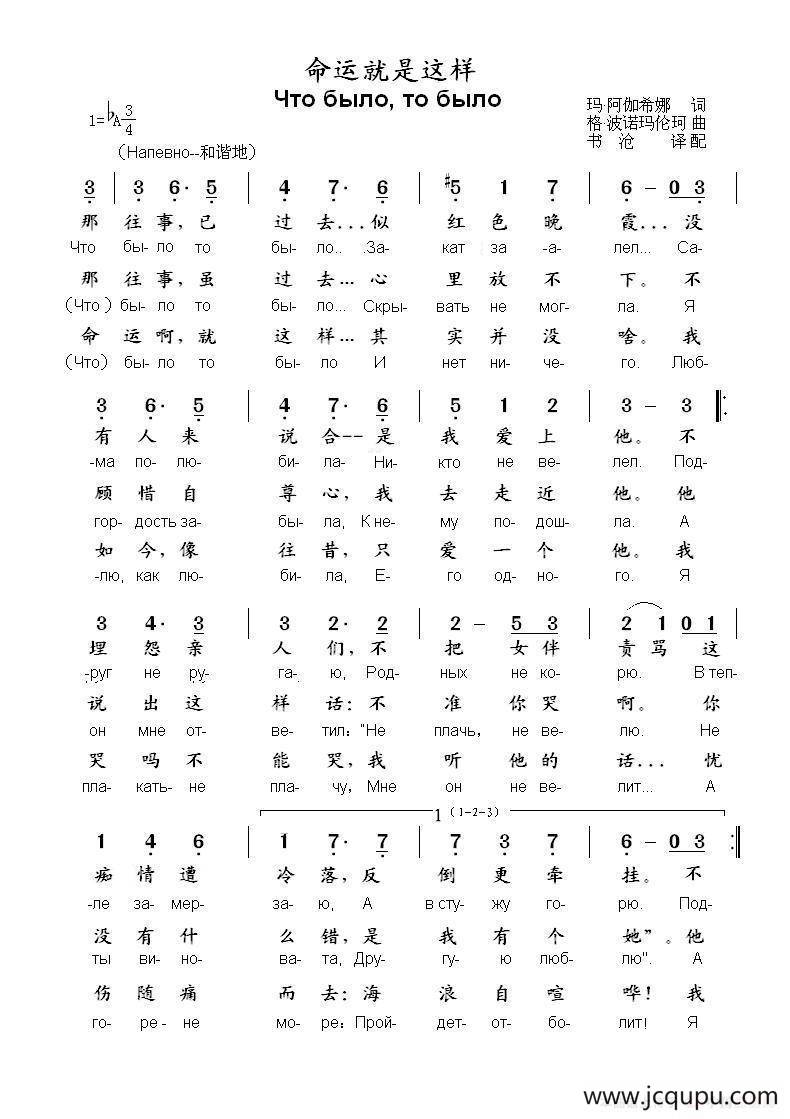 命运就是这样
Что было, то было
1=♭A 3/4
玛·阿伽希娜 词
格·波诺玛伦珂 曲
书 沧 译配
（Напевно--和谐地）
3 | 3 6· 5 | 4 7· 6 | #5 1 7 | 6 – 0 3 |
那 往 事，已 过 去...似 红 色 晚 霞...没
Что бы- ло то было.. За- кат за -а- лел... Са-
那 往 事，虽 过 去...心 里 放 不 下。不
(Что ) бы- ло то бы- ло... Скры- вать не мог- ла. Я
命 运 啊，就 这 样...其 实 并 没 啥。我
(Что) бы- ло то бы- ло И нет ни- че- го. Люб-
3 6· 5 | 4 7· 6 | 5 1 2 | 3 – 3 |:
有 人 来 说 合--是 我 爱 上 他。不
-ма по- лю- била- Ни- кто не ве- лел. Под-
顾 惜 自 尊 心，我 去 走 近 他。他
гор- дость за- бы- ла, К не- му по- дош- ла. А
如 今，像 往 昔，只 爱 一 个 他。我
-лю, как лю- била, Е- го од- но- го. Я
3 4· 3 | 3 2· 2 | 2 – 5 3 | 2 1 0 1 |
埋 怨 亲 人 们，不 把 女 伴 责 骂 这
-руг не ру- га- ю, Род- ных не ко- рю. В теп-
说 出 这 样 话：不 准 你 哭 啊。你
он мне от- ве- тил: "Не плачь, не ве- лю. Не
哭 吗 不 能 哭，我 听 他 的 话... 忧
пла- кать- не пла- чу, Мне он не ве- лит... А
1（1-2-3）
1 4 6 | 1 7· 7 | 7 3 7 | 6 – 0 3 :|
痴 情 遭 冷 落，反 倒 更 牵 挂。不
-ле за- мер- за- ю, А в сту- жу го- рю. Под-
没 有 什 么 错，是 我 有 个 她”。他
ты ви- но- ва- та, Дру- гу- ю люб- лю". А
伤 随 痛 而 去：海 浪 自 喧 哗！我
го- ре- не мо- ре: Прой- дет- от- бо- лит! Я
www.jcqupu.com